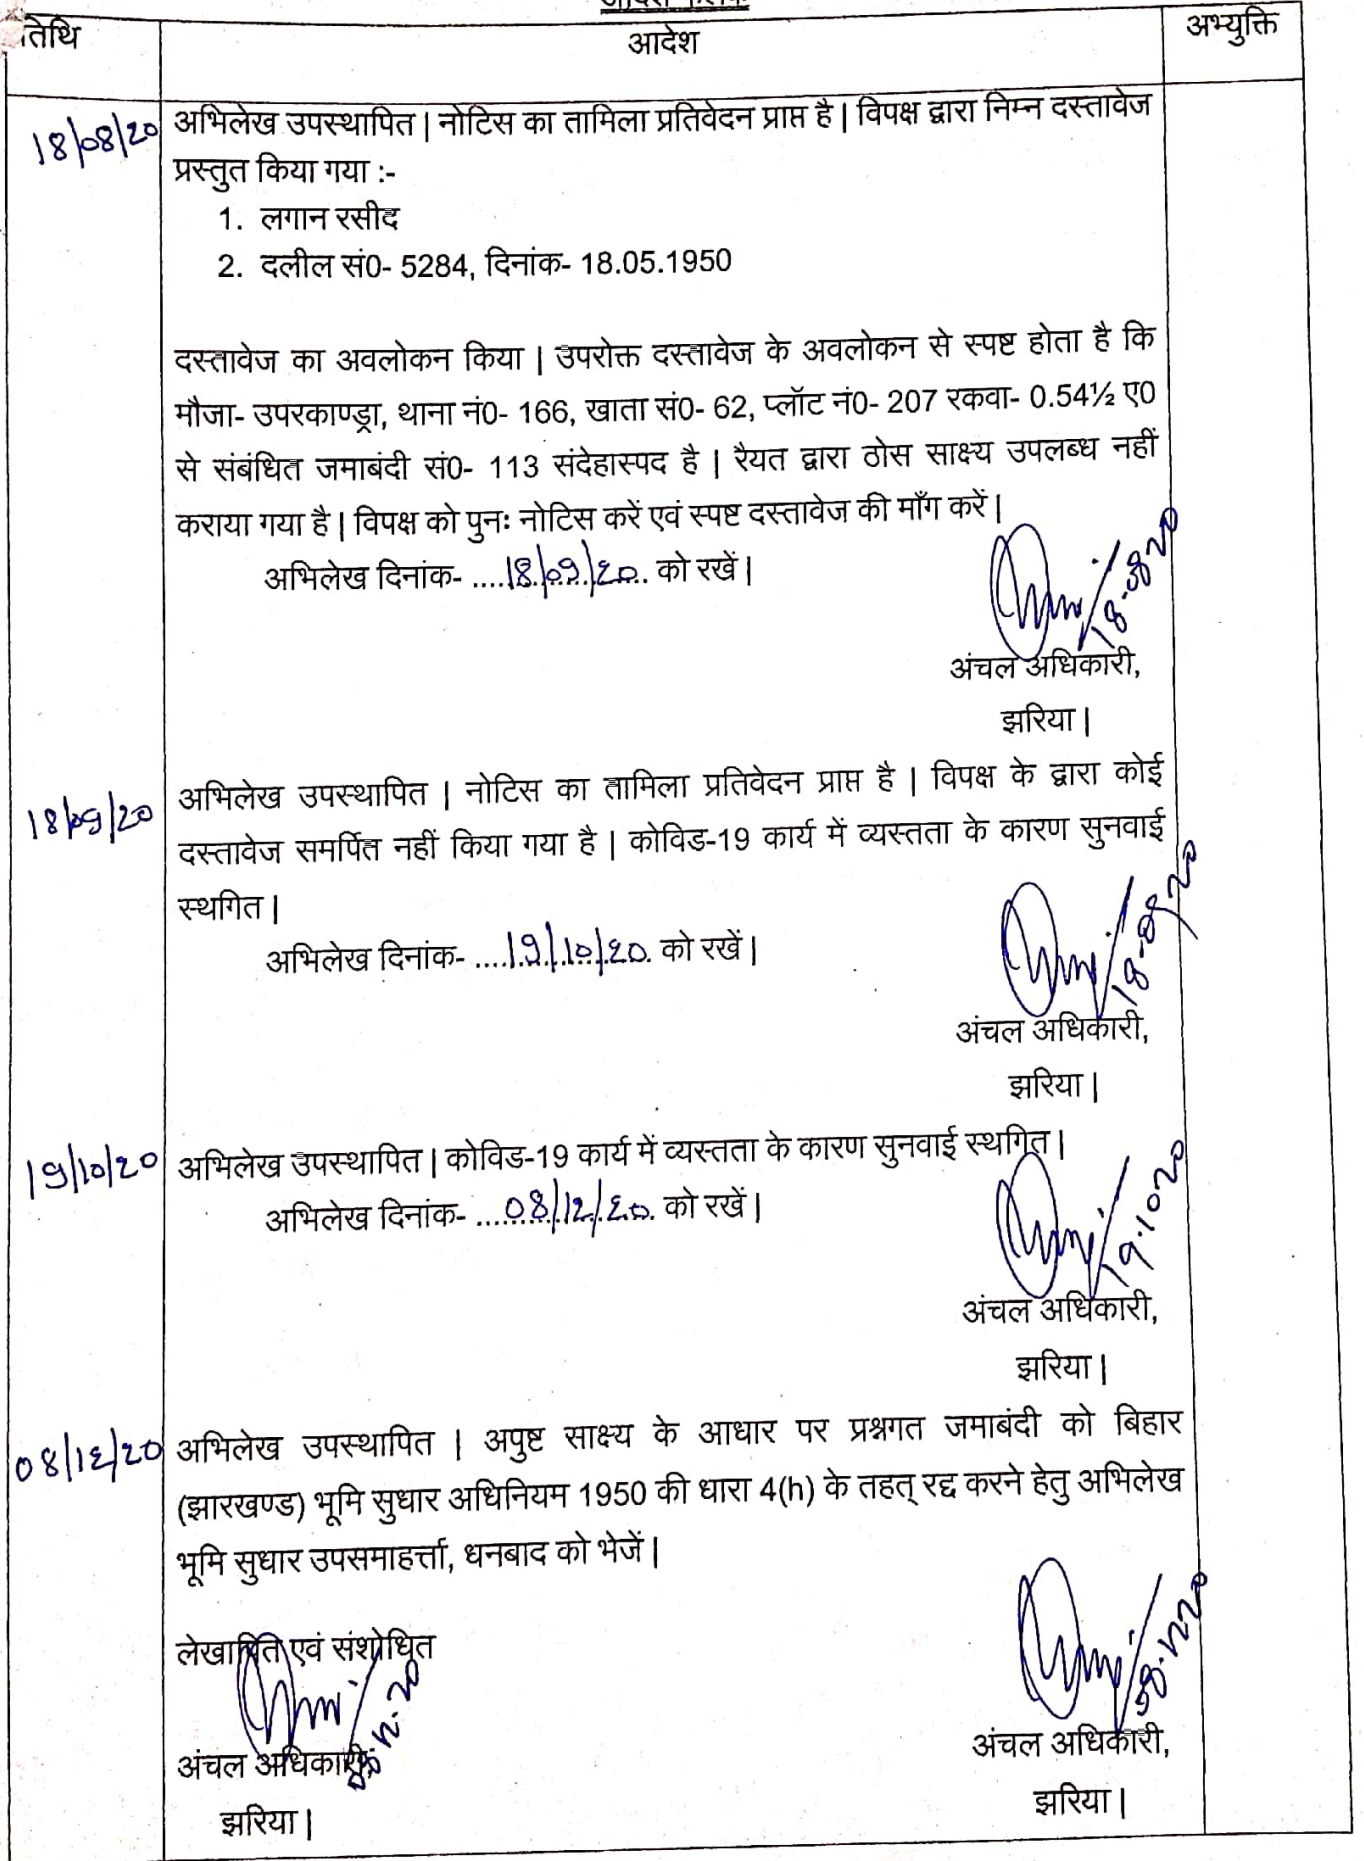 तिथि
आदेश
अभ्युक्ति
18/08/20
अभिलेख उपस्थापित | नोटिस का तामिला प्रतिवेदन प्राप्त है | विपक्ष द्वारा निम्न दस्तावेज
प्रस्तुत किया गया :-
1. लगान रसीद
2. दलील सं0- 5284, दिनांक- 18.05.1950
दस्तावेज का अवलोकन किया | उपरोक्त दस्तावेज के अवलोकन से स्पष्ट होता है कि
मौजा- उपरकाण्ड्रा, थाना नं0- 166, खाता सं0- 62, प्लॉट नं0- 207 रकवा- 0.54½ ए0
से संबंधित जमाबंदी सं0- 113 संदेहास्पद है | रैयत द्वारा ठोस साक्ष्य उपलब्ध नहीं
कराया गया है | विपक्ष को पुनः नोटिस करें एवं स्पष्ट दस्तावेज की माँग करें |
अभिलेख दिनांक- ....18/09/20.. को रखें |
18-08-20
अंचल अधिकारी,
झरिया |
18/09/20
अभिलेख उपस्थापित | नोटिस का तामिला प्रतिवेदन प्राप्त है | विपक्ष के द्वारा कोई
दस्तावेज समर्पित नहीं किया गया है | कोविड-19 कार्य में व्यस्तता के कारण सुनवाई
स्थगित |
अभिलेख दिनांक- ....19/10/20. को रखें |
18-09-20
अंचल अधिकारी,
झरिया |
19/10/20
अभिलेख उपस्थापित | कोविड-19 कार्य में व्यस्तता के कारण सुनवाई स्थगित |
अभिलेख दिनांक- ....08/12/20. को रखें |
19.10.20
अंचल अधिकारी,
झरिया |
08/12/20
अभिलेख उपस्थापित | अपुष्ट साक्ष्य के आधार पर प्रश्नगत जमाबंदी को बिहार
(झारखण्ड) भूमि सुधार अधिनियम 1950 की धारा 4(h) के तहत् रद्द करने हेतु अभिलेख
भूमि सुधार उपसमाहर्त्ता, धनबाद को भेजें |
लेखापित एवं संशोधित
08.12.20
अंचल अधिकारी,
झरिया |
08.12.20
अंचल अधिकारी,
झरिया |